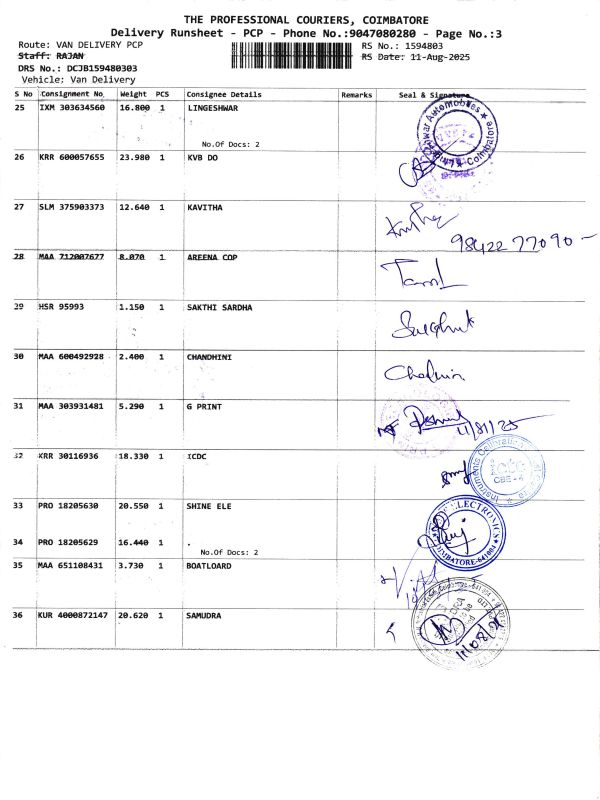 THE PROFESSIONAL COURIERS, COIMBATORE
Delivery Runsheet - PCP - Phone No.:9047080280 - Page No.:3
Route: VAN DELIVERY PCP RS No.: 1594803
Staff: RAJAN RS Date: 11-Aug-2025
DRS No.: DCJB159480303
Vehicle: Van Delivery
S No Consignment No Weight PCS Consignee Details Remarks Seal & Signature
25 IXM 303634560 16.800 1 LINGESHWAR
No.Of Docs: 2
Automobiles ★ Coimbatore
26 KRR 600057655 23.980 1 KVB DO
27 SLM 375903373 12.640 1 KAVITHA
98422 77090-
28 MAA 712007677 8.070 1 AREENA COP
29 HSR 95993 1.150 1 SAKTHI SARDHA
30 MAA 600492928 2.400 1 CHANDHINI
31 MAA 303931481 5.290 1 G PRINT
11/8/25
32 KRR 30116936 18.330 1 ICDC
Instruments Calibration
CBE-4
33 PRO 18205630 20.550 1 SHINE ELE
ELECTRONICS
COIMBATORE-641004
34 PRO 18205629 16.440 1 .
No.Of Docs: 2
35 MAA 651108431 3.730 1 BOATLOARD
36 KUR 4000872147 20.620 1 SAMUDRA